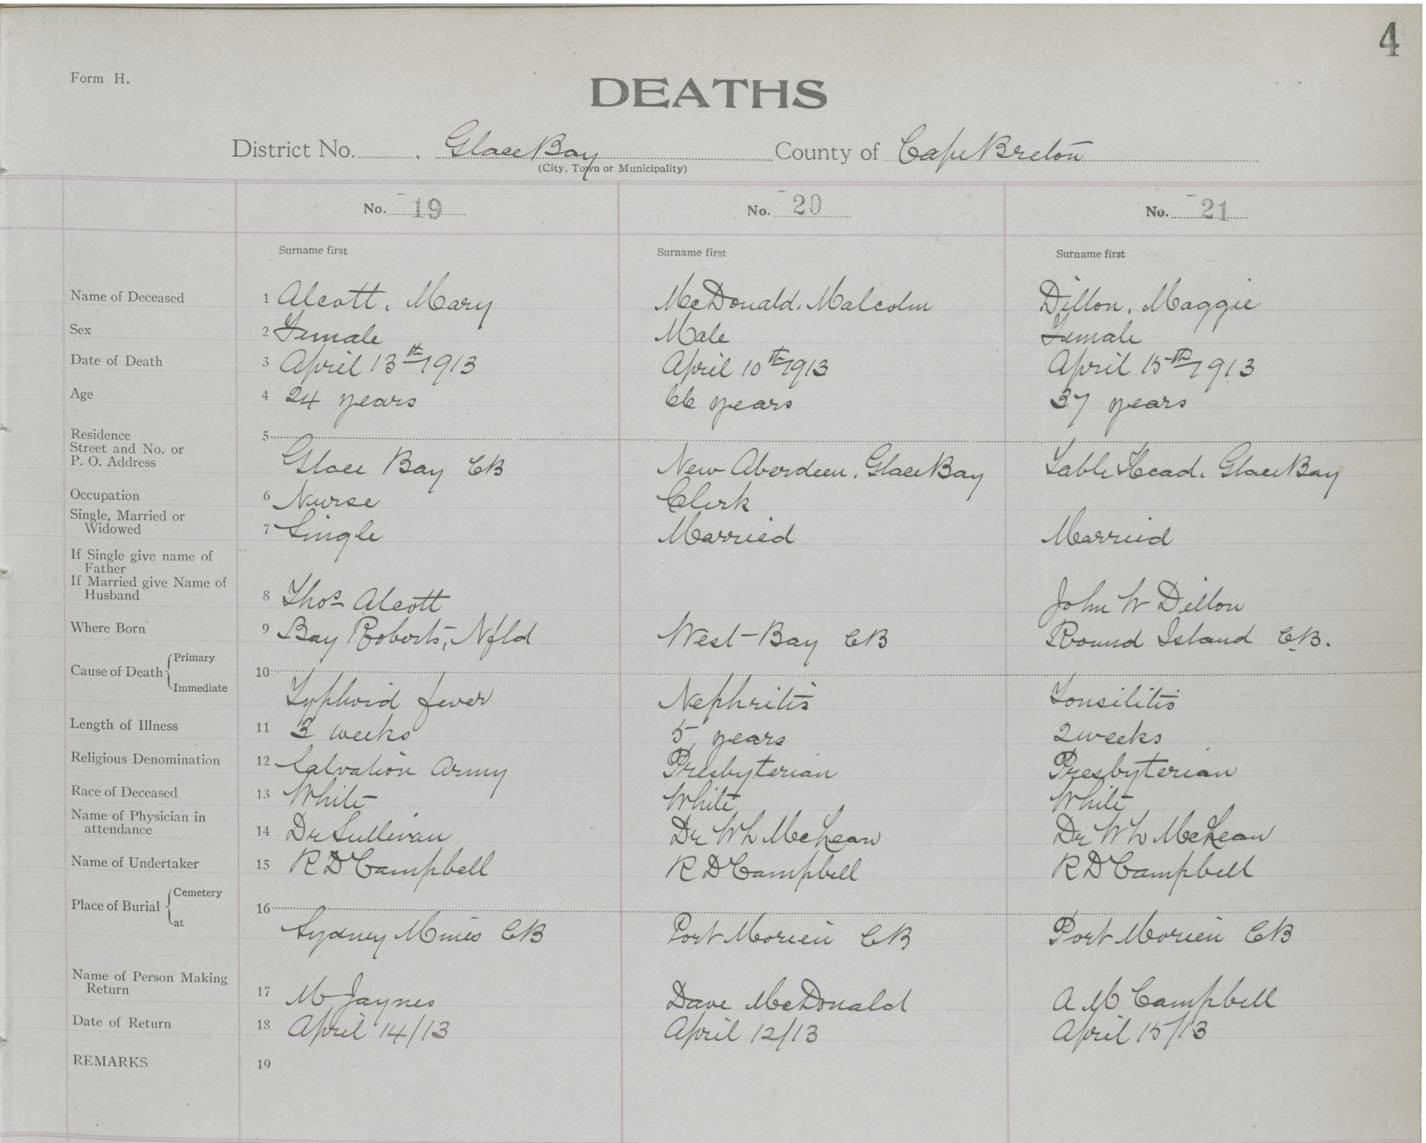 4
Form H.
DEATHS
District No. . Glace Bay County of Cape Breton
(City, Town or Municipality)
No. 19 No. 20 No. 21
Surname first Surname first Surname first
Name of Deceased 1 Alcott, Mary McDonald, Malcolm Dillon, Maggie
Sex 2 Female Male Female
Date of Death 3 April 13th 1913 April 10th 1913 April 15th 1913
Age 4 24 years 66 years 37 years
Residence
Street and No. or
P. O. Address 5 Glace Bay CB New Aberdeen, Glace Bay Table Head, Glace Bay
Occupation 6 Nurse Clerk
Single, Married or
Widowed 7 Single Married Married
If Single give name of
Father
If Married give Name of
Husband 8 Thos Alcott John W Dillon
Where Born 9 Bay Roberts, Nfld West-Bay CB Round Island CB.
Cause of Death { Primary
Immediate 10 Typhoid fever Nephritis Tonsilitis
Length of Illness 11 3 weeks 5 years 2 weeks
Religious Denomination 12 Salvation Army Presbyterian Presbyterian
Race of Deceased 13 White White White
Name of Physician in
attendance 14 Dr Sullivan Dr W L McLean Dr W L McLean
Name of Undertaker 15 R D Campbell R D Campbell R D Campbell
Place of Burial { Cemetery
at 16 Sydney Mines CB Port Morien CB Port Morien CB
Name of Person Making
Return 17 M Jaynes Dave McDonald A M Campbell
Date of Return 18 April 14/13 April 12/13 April 15/13
REMARKS 19